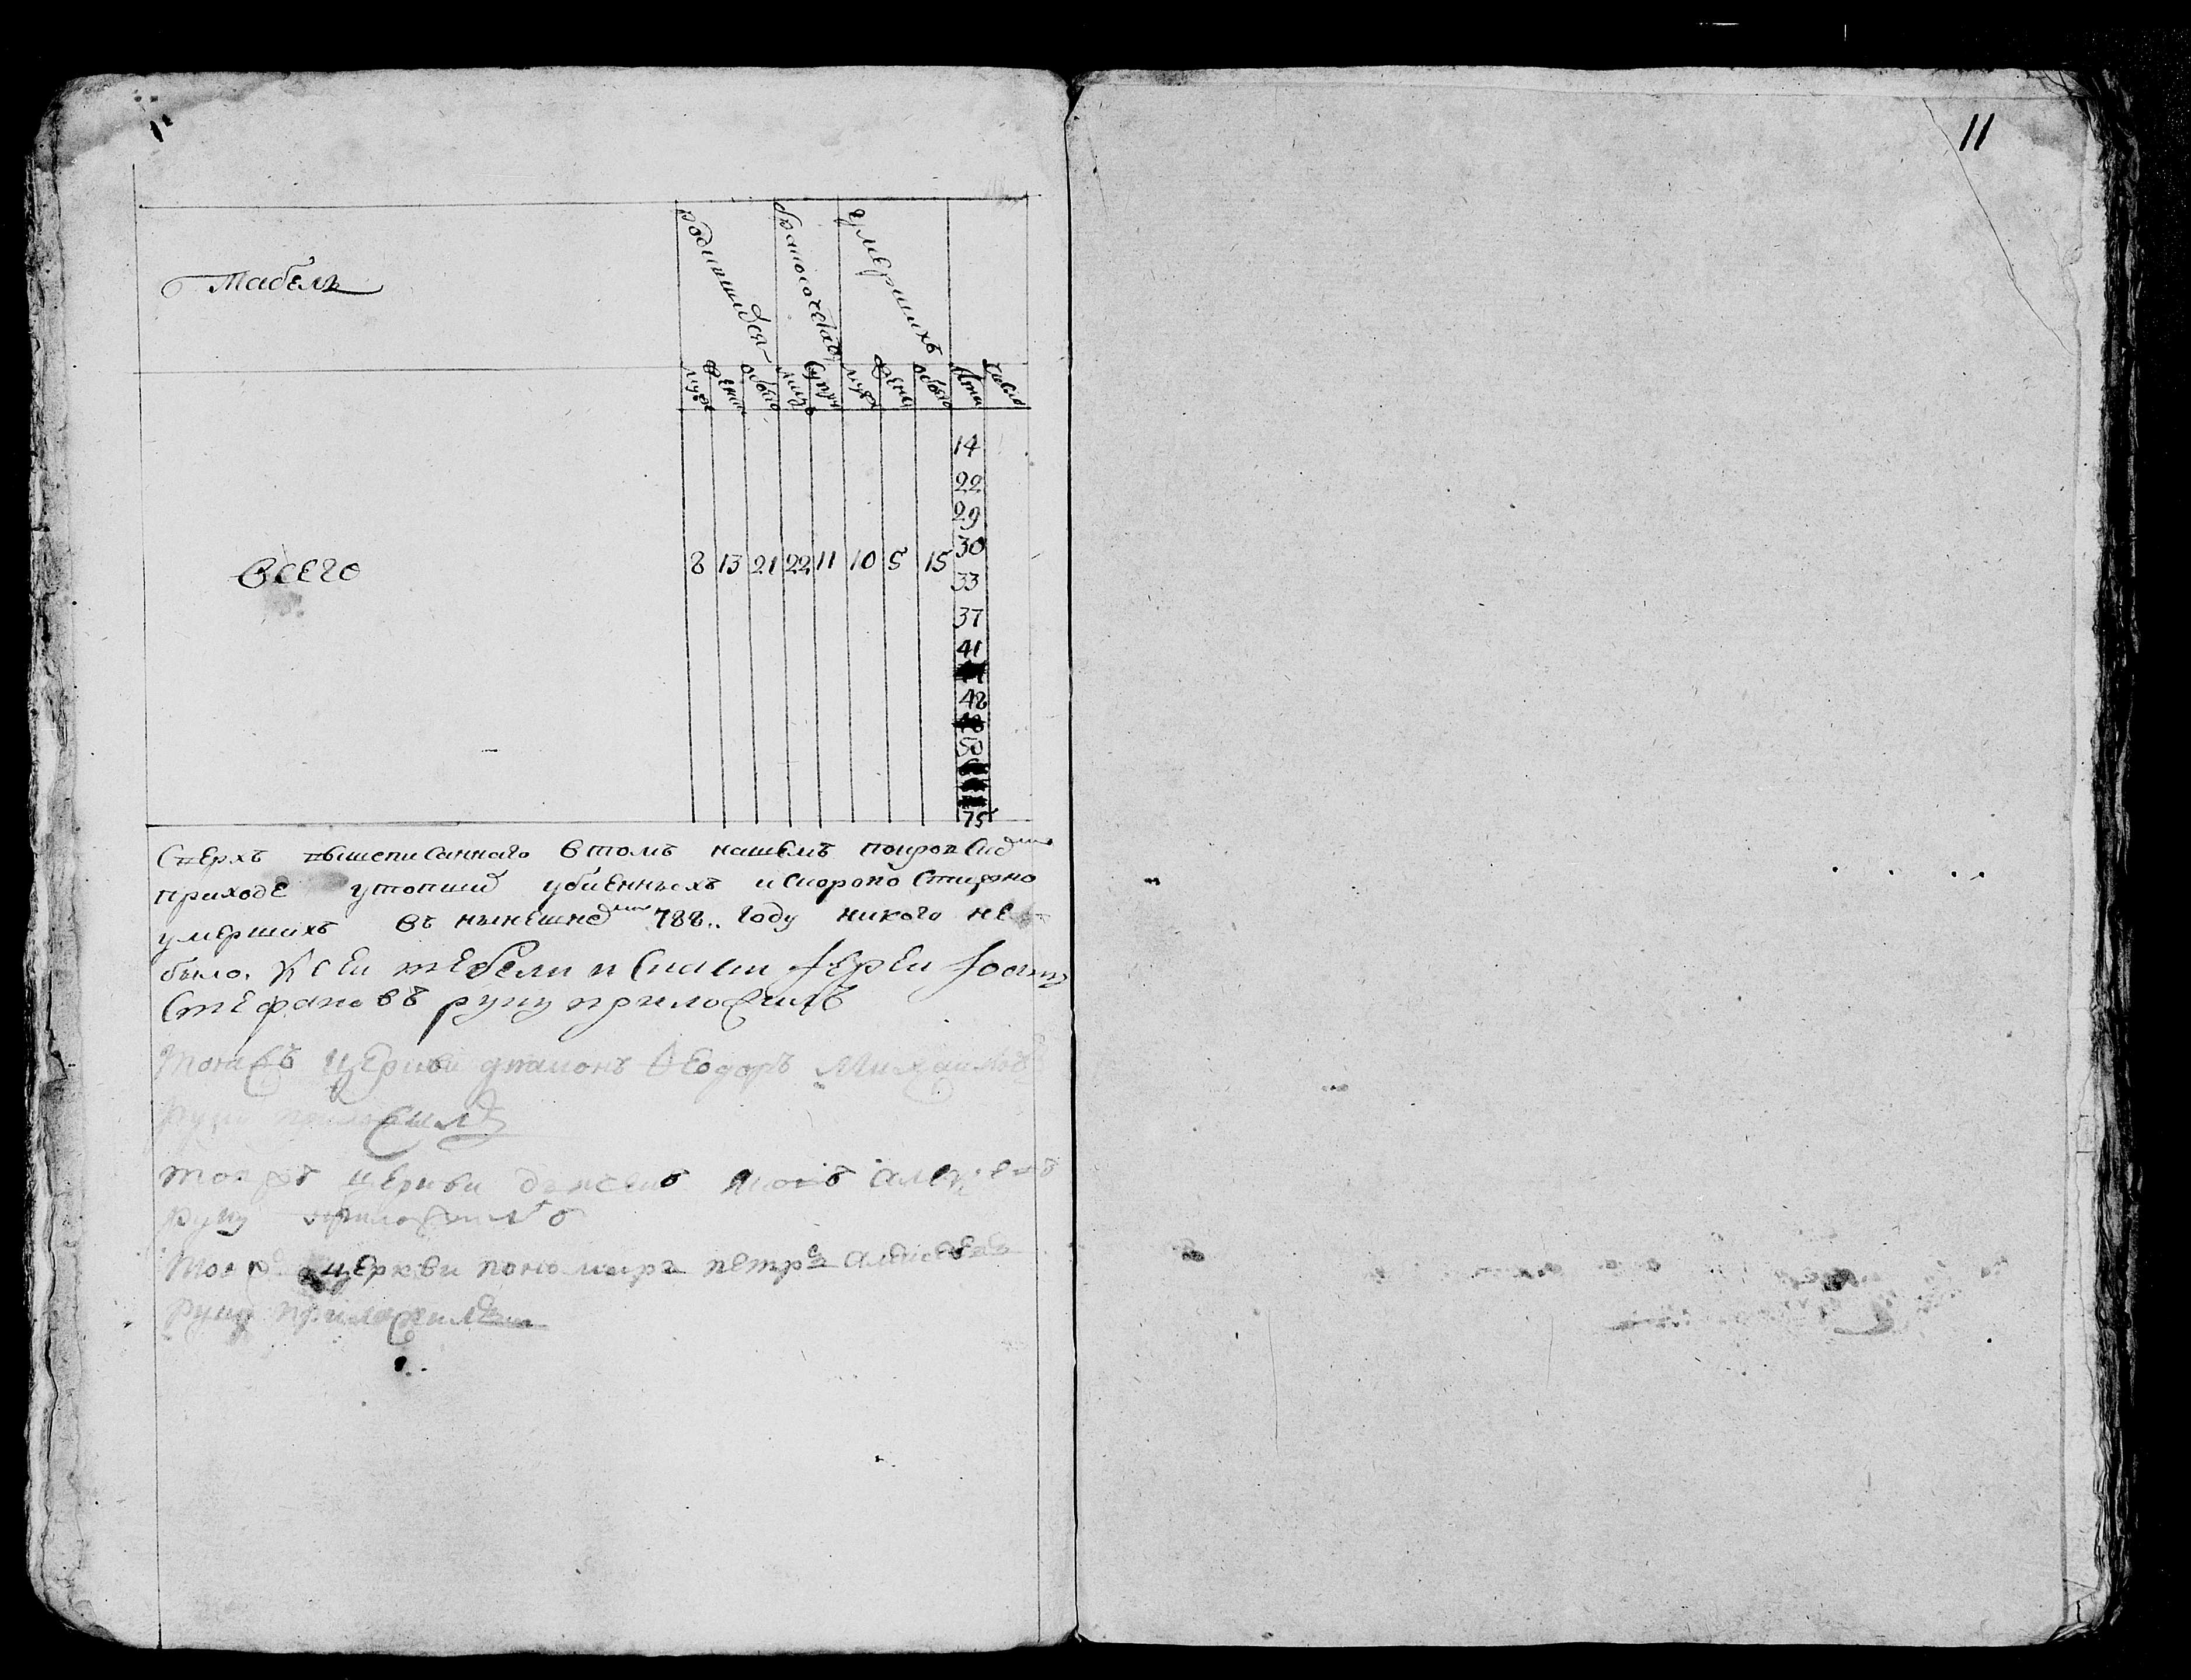 11
Табель
родившихся
бракосочетав
умершихъ
мужс женс обоего лицъ супру мужс женс обоего лѣта число
14
22
29
Всего 8 13 21 22 11 10 5 15 30
33
37
41
48
50
75
Сверхъ вышеписаннаго втомъ нашемъ покровски
приходе утопши убиенныхъ искоропостижно
умершихъ въ нынешне 788. году никого не
было. К сеи тебели покъскои иереи Иоаннъ
Стефановъ руку приложилъ
тоижъ церкви диаконъ Ѳеодоръ Михаиловъ
руку приложилъ
тояжъ церкви дьячекъ
руку приложилъ
тояж церкви пономарь петръ алексеевъ
руку приложилъ